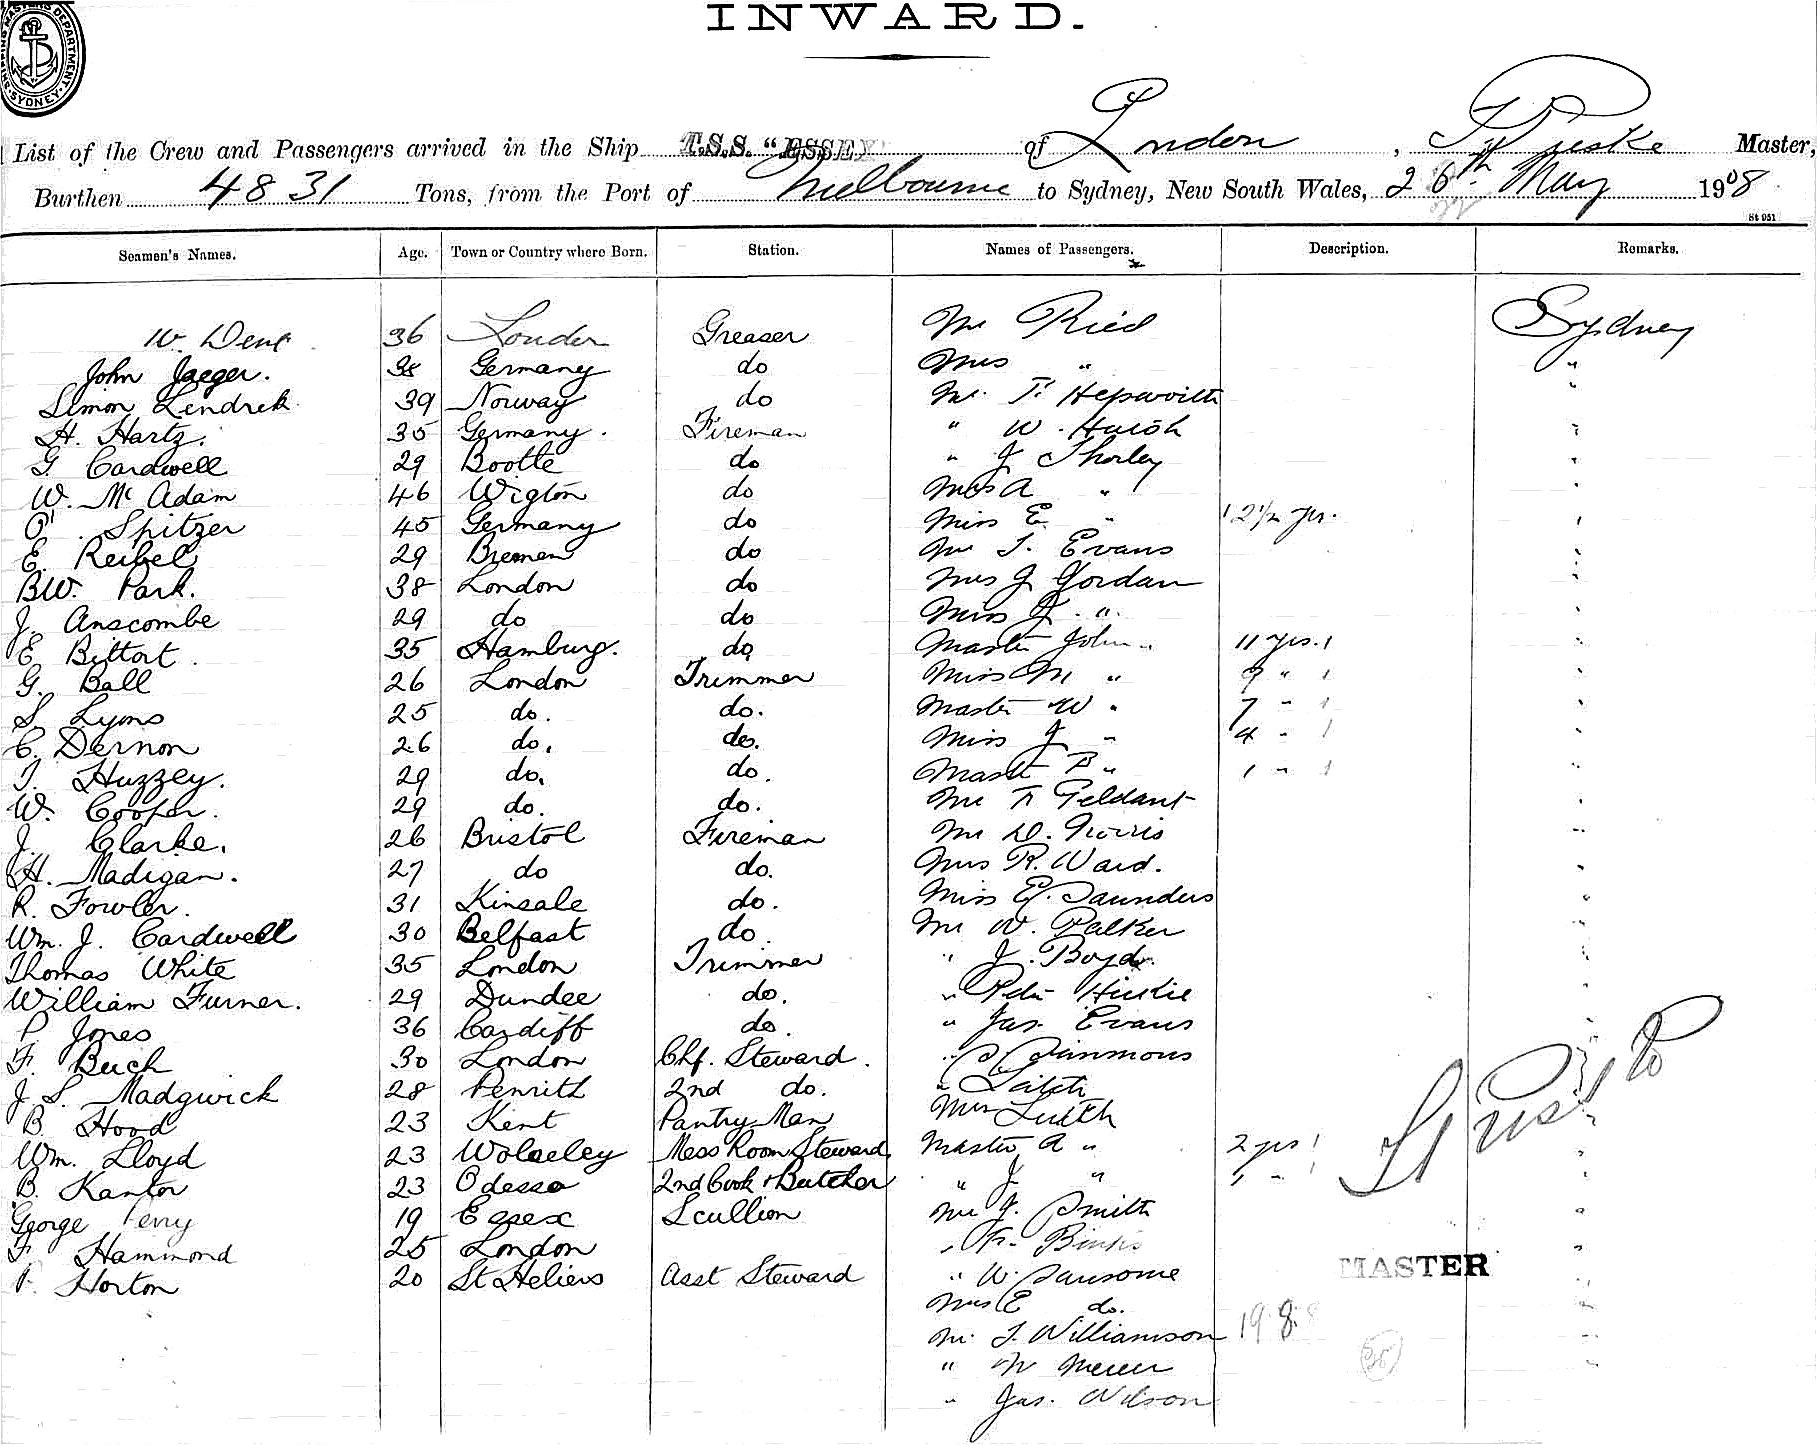 INWARD.
SHIPPING MASTERS DEPARTMENT SYDNEY
List of the Crew and Passengers arrived in the Ship T.S.S. "ESSEX" of London, Master,
Burthen 4831 Tons, from the Port of Melbourne to Sydney, New South Wales, 26th May 1908
St 951
Seamen's Names. Age. Town or Country where Born. Station. Names of Passengers. Description. Remarks.
W. Dent 36 London Greaser Mr Ried Sydney
John Jaeger. 38 Germany do Mrs " "
Simon Lendrek 39 Norway do Mr. T. Hepworth "
H. Hartz. 35 Germany. Fireman " W. Huish "
G. Cardwell 29 Bootle do " J Thorley "
W. Mc Adam 46 Wigton do Mrs A " "
O. Spitzer 45 Germany do Miss E. " 12½ yrs. "
E. Reibel 29 Bremen do Mr T. Evans "
BW. Park. 38 London do Mrs J Gordan "
J. Anscombe 29 do do Miss J. " "
E Bittort. 35 Hamburg. do Master John " 11 yrs. 1 "
G. Ball 26 London Trimmer Miss M " 9 " 1 "
S. Lyons 25 do. do. Master W " 7 " 1 "
C. Dernon 26 do. do. Miss J " 4 " 1 "
T. Huzzey. 29 do. do. Master B " 1 " 1 "
W. Cooper. 29 do. do. Mr F Geldart "
J. Clarke. 26 Bristol Fireman Mr D. Norris "
H. Madigan. 27 do do. Mrs R. Ward. "
R. Fowler. 31 Kinsale do. Miss E. Saunders "
Wm. J. Cardwell 30 Belfast do. Mr W. Palker "
Thomas White 35 London Trimmer " J. Boyd. "
William Furner. 29 Dundee do. " Peter Hickie "
P Jones 36 Cardiff do. " Jas. Evans "
F. Buch 30 London Chf. Steward. " Simmons "
J S. Madgwick 28 Penrith 2nd do. " Leith "
B. Hood 23 Kent Pantry Man Mrs Leith "
Wm. Lloyd 23 Wolseley Mess Room Steward Master A " 2 yrs 1 "
B. Kantor 23 Odessa 2nd Cook & Butcher " J " 1 " 1 "
George Perry 19 Essex Scullion Mr J. Smith "
F Hammond 25 London " Binks "
P. Horton 20 St Heliers Asst Steward " W. Sansome "
MASTER
Mrs E do. "
Mr. T. Williamson 19 8 "
" W Mercer "
" Jas. Wilson